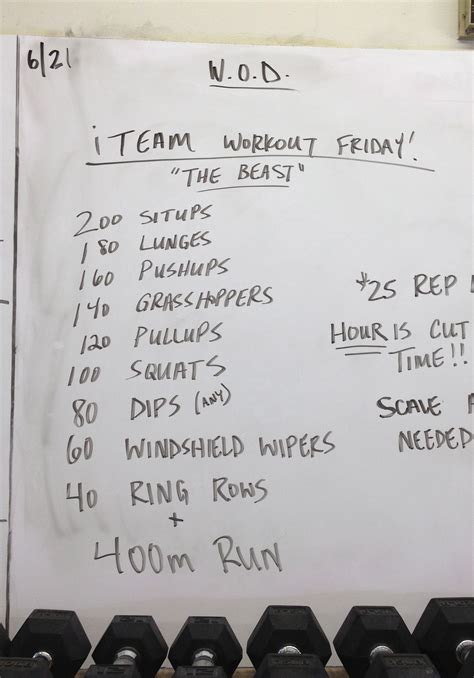 6/21
W.O.D.
¡TEAM WORKOUT FRIDAY!
"THE BEAST"
200 SITUPS
180 LUNGES
160 PUSHUPS
140 GRASSHOPPERS
120 PULLUPS
100 SQUATS
80 DIPS (ANY)
60 WINDSHIELD WIPERS
40 RING ROWS
+
400m RUN
*25 REP
HOUR IS CUT
TIME!!
SCALE
NEEDED